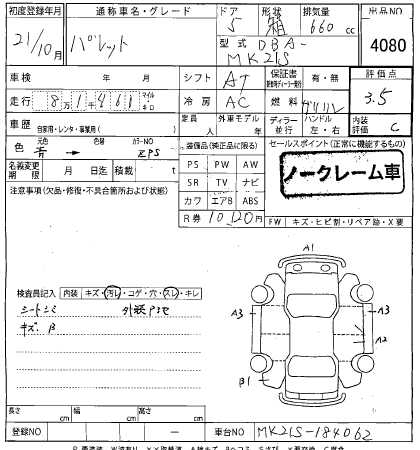 初度登録年月 通称車名・グレード ドア 形状 排気量 出品NO
21/10月 パレット 5 箱 660 cc 4080
型式 DBA-
MK21S
車検 年 月 シフト AT 保証書 有・無 評価点
走行 8万1千461 マイル キロ 冷房 AC 燃料 ガソリン 3.5
車歴 自家用・レンタ・事業用( ) 定員 人 外車モデル 年 ディーラー 並行 ハンドル 左・右 内装評価 C
色 元色 青→ 色替 カラーNO ZPS 装備品(純正品に限る) セールスポイント(正常に機能するもの)
名義変更期限 月 日迄 積載 t PS PW AW ノークレーム車
注意事項(欠品・修復・不具合箇所および状態) SR TV ナビ
カワ エアB ABS
R券 10,120円 FW キズ・ヒビ割・リペア跡・X要
A1
検査員記入 内装 キズ・汚レ・コゲ・穴・スレ・キレ
シートシミ
キズ B
A3 A3
A2
B1
長さ cm 幅 cm 高さ cm
登録NO 車台NO MK21S-184062